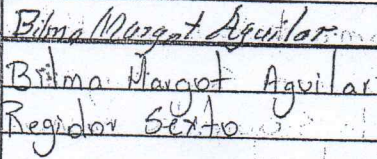 Bilma Margot Aguilar
Brilma Margot Aguilar
Regidor Sexto